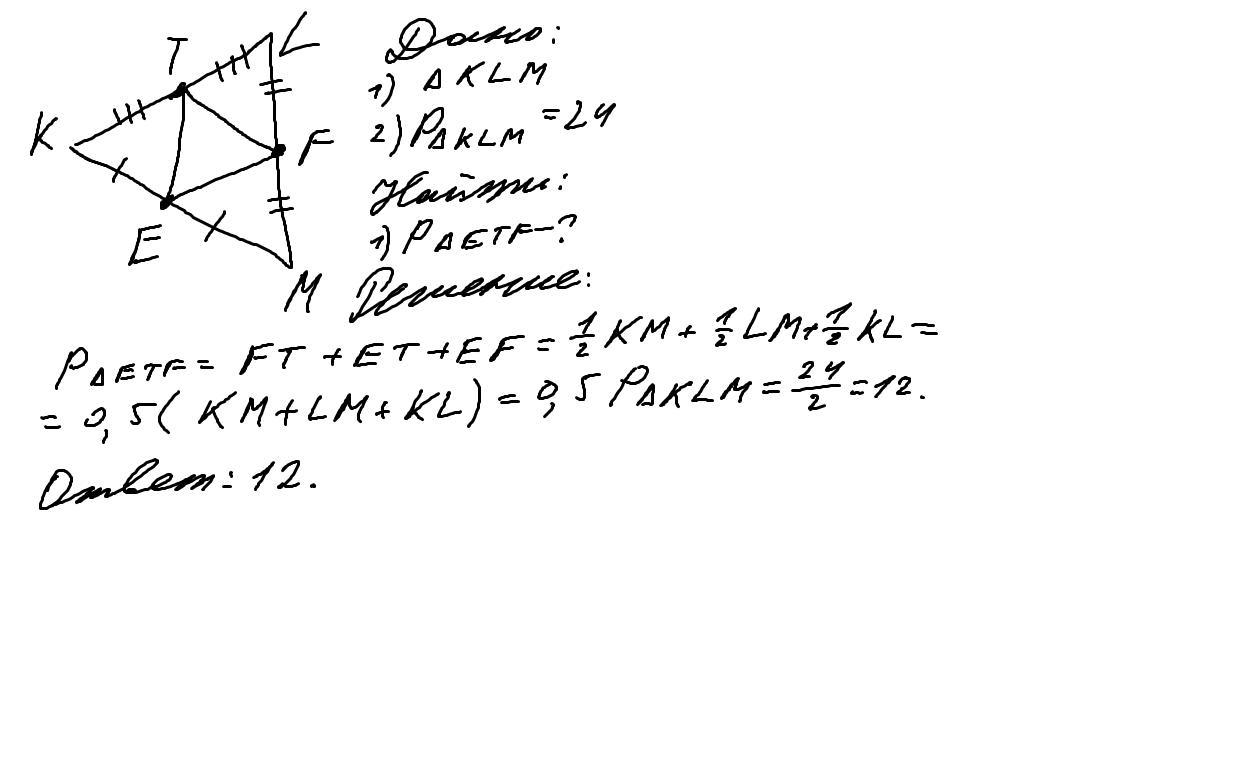 T
L
K
F
E
M
Дано:
1) Δ KLM
2) PΔKLM = 24
Найти:
1) PΔETF - ?
Решение:
PΔETF = FT + ET + EF = 1/2 KM + 1/2 LM + 1/2 KL =
= 0,5 ( KM + LM + KL ) = 0,5 PΔKLM = 24/2 = 12.
Ответ: 12.